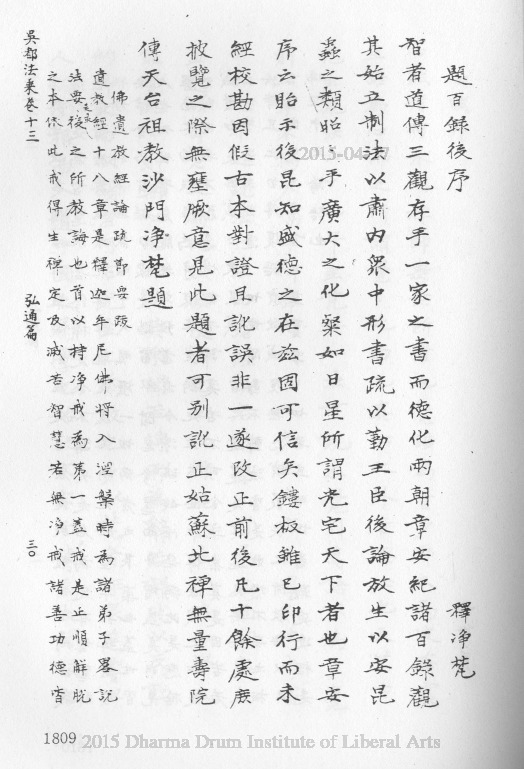 題百錄後序
釋淨梵
智者道傳三觀存乎一家之書而德化兩朝章安紀諸百錄觀
其始立制法以肅內眾中形書疏以勤王臣後論放生以安昆
蟲之類昭昭乎廣大之化粲如日星所謂光宅天下者也章安
序云貽示後昆知盛德之在茲固可信矣鏤板雖已印行而未
經校勘因假古本對證且訛誤非一遂改正前後凡十餘處庶
披覽之際無壅厥意見此題者可別訛正姑蘇北禪無量壽院
傳天台祖教沙門淨梵題
佛遺教經論疏節要跋
遺教經十八章是釋迦牟尼佛將入涅槃時為諸弟子畧說
法要後之所教誨也首以持淨戒為第一蓋戒是正順解脫
之本依此戒得生禪定及滅苦智慧若無淨戒諸善功德皆
吳都法乘卷十三
弘通篇
三〇
1809
2015 Dharma Drum Institute of Liberal Arts